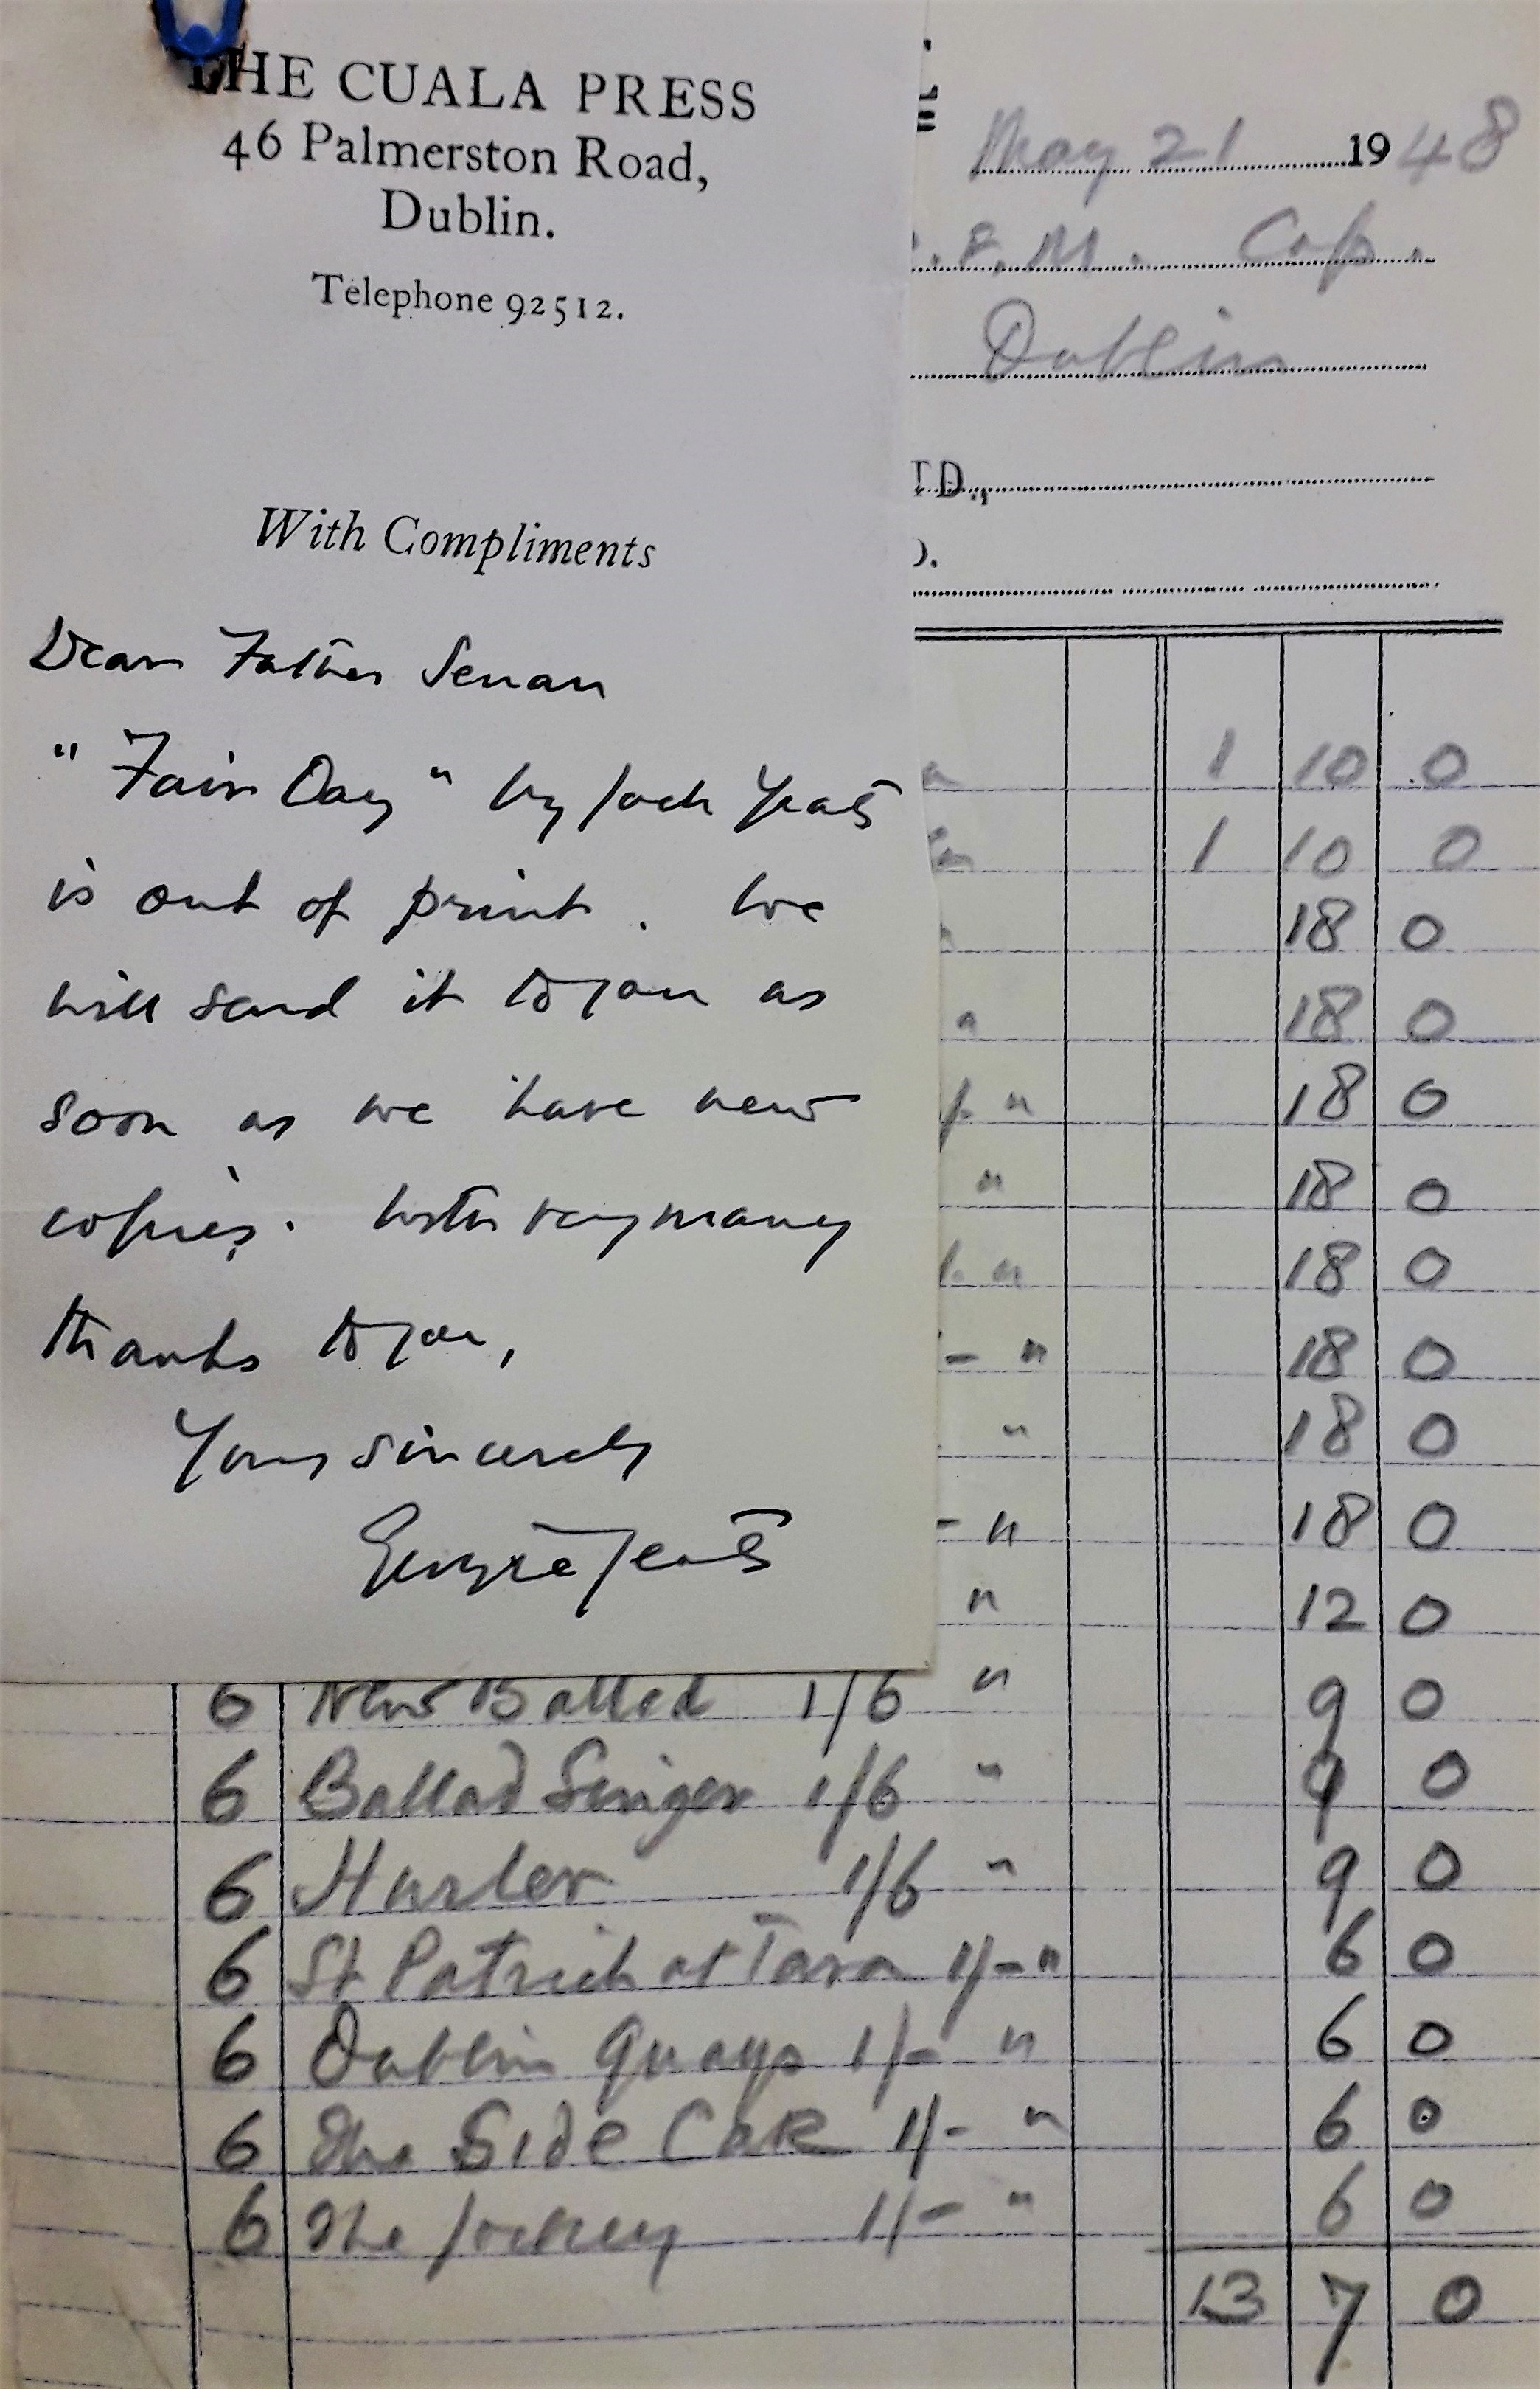 THE CUALA PRESS
46 Palmerston Road,
Dublin.
Telephone 92512.
With Compliments
Dear Father Senan
"Fair Day" by Jack Yeats
is out of print. We
will send it to you as
soon as we have new
copies. With very many
thanks to you,
Yours sincerely
George Yeats
May 21 1948
.F.M. Cap.
Dublin
TD.,
).
1 10 0
1 10 0
18 0
18 0
18 0
" 18 0
" 18 0
- " 18 0
" 18 0
- " 18 0
" 12 0
6 New Ballad 1/6 " 9 0
6 Ballad Singer 1/6 " 9 0
6 Hurler 1/6 " 9 0
6 St Patrick at Tara 1/- " 6 0
6 Dublin Quays 1/- " 6 0
6 The Side Car 1/- " 6 0
6 The Jockey 1/- " 6 0
13 7 0